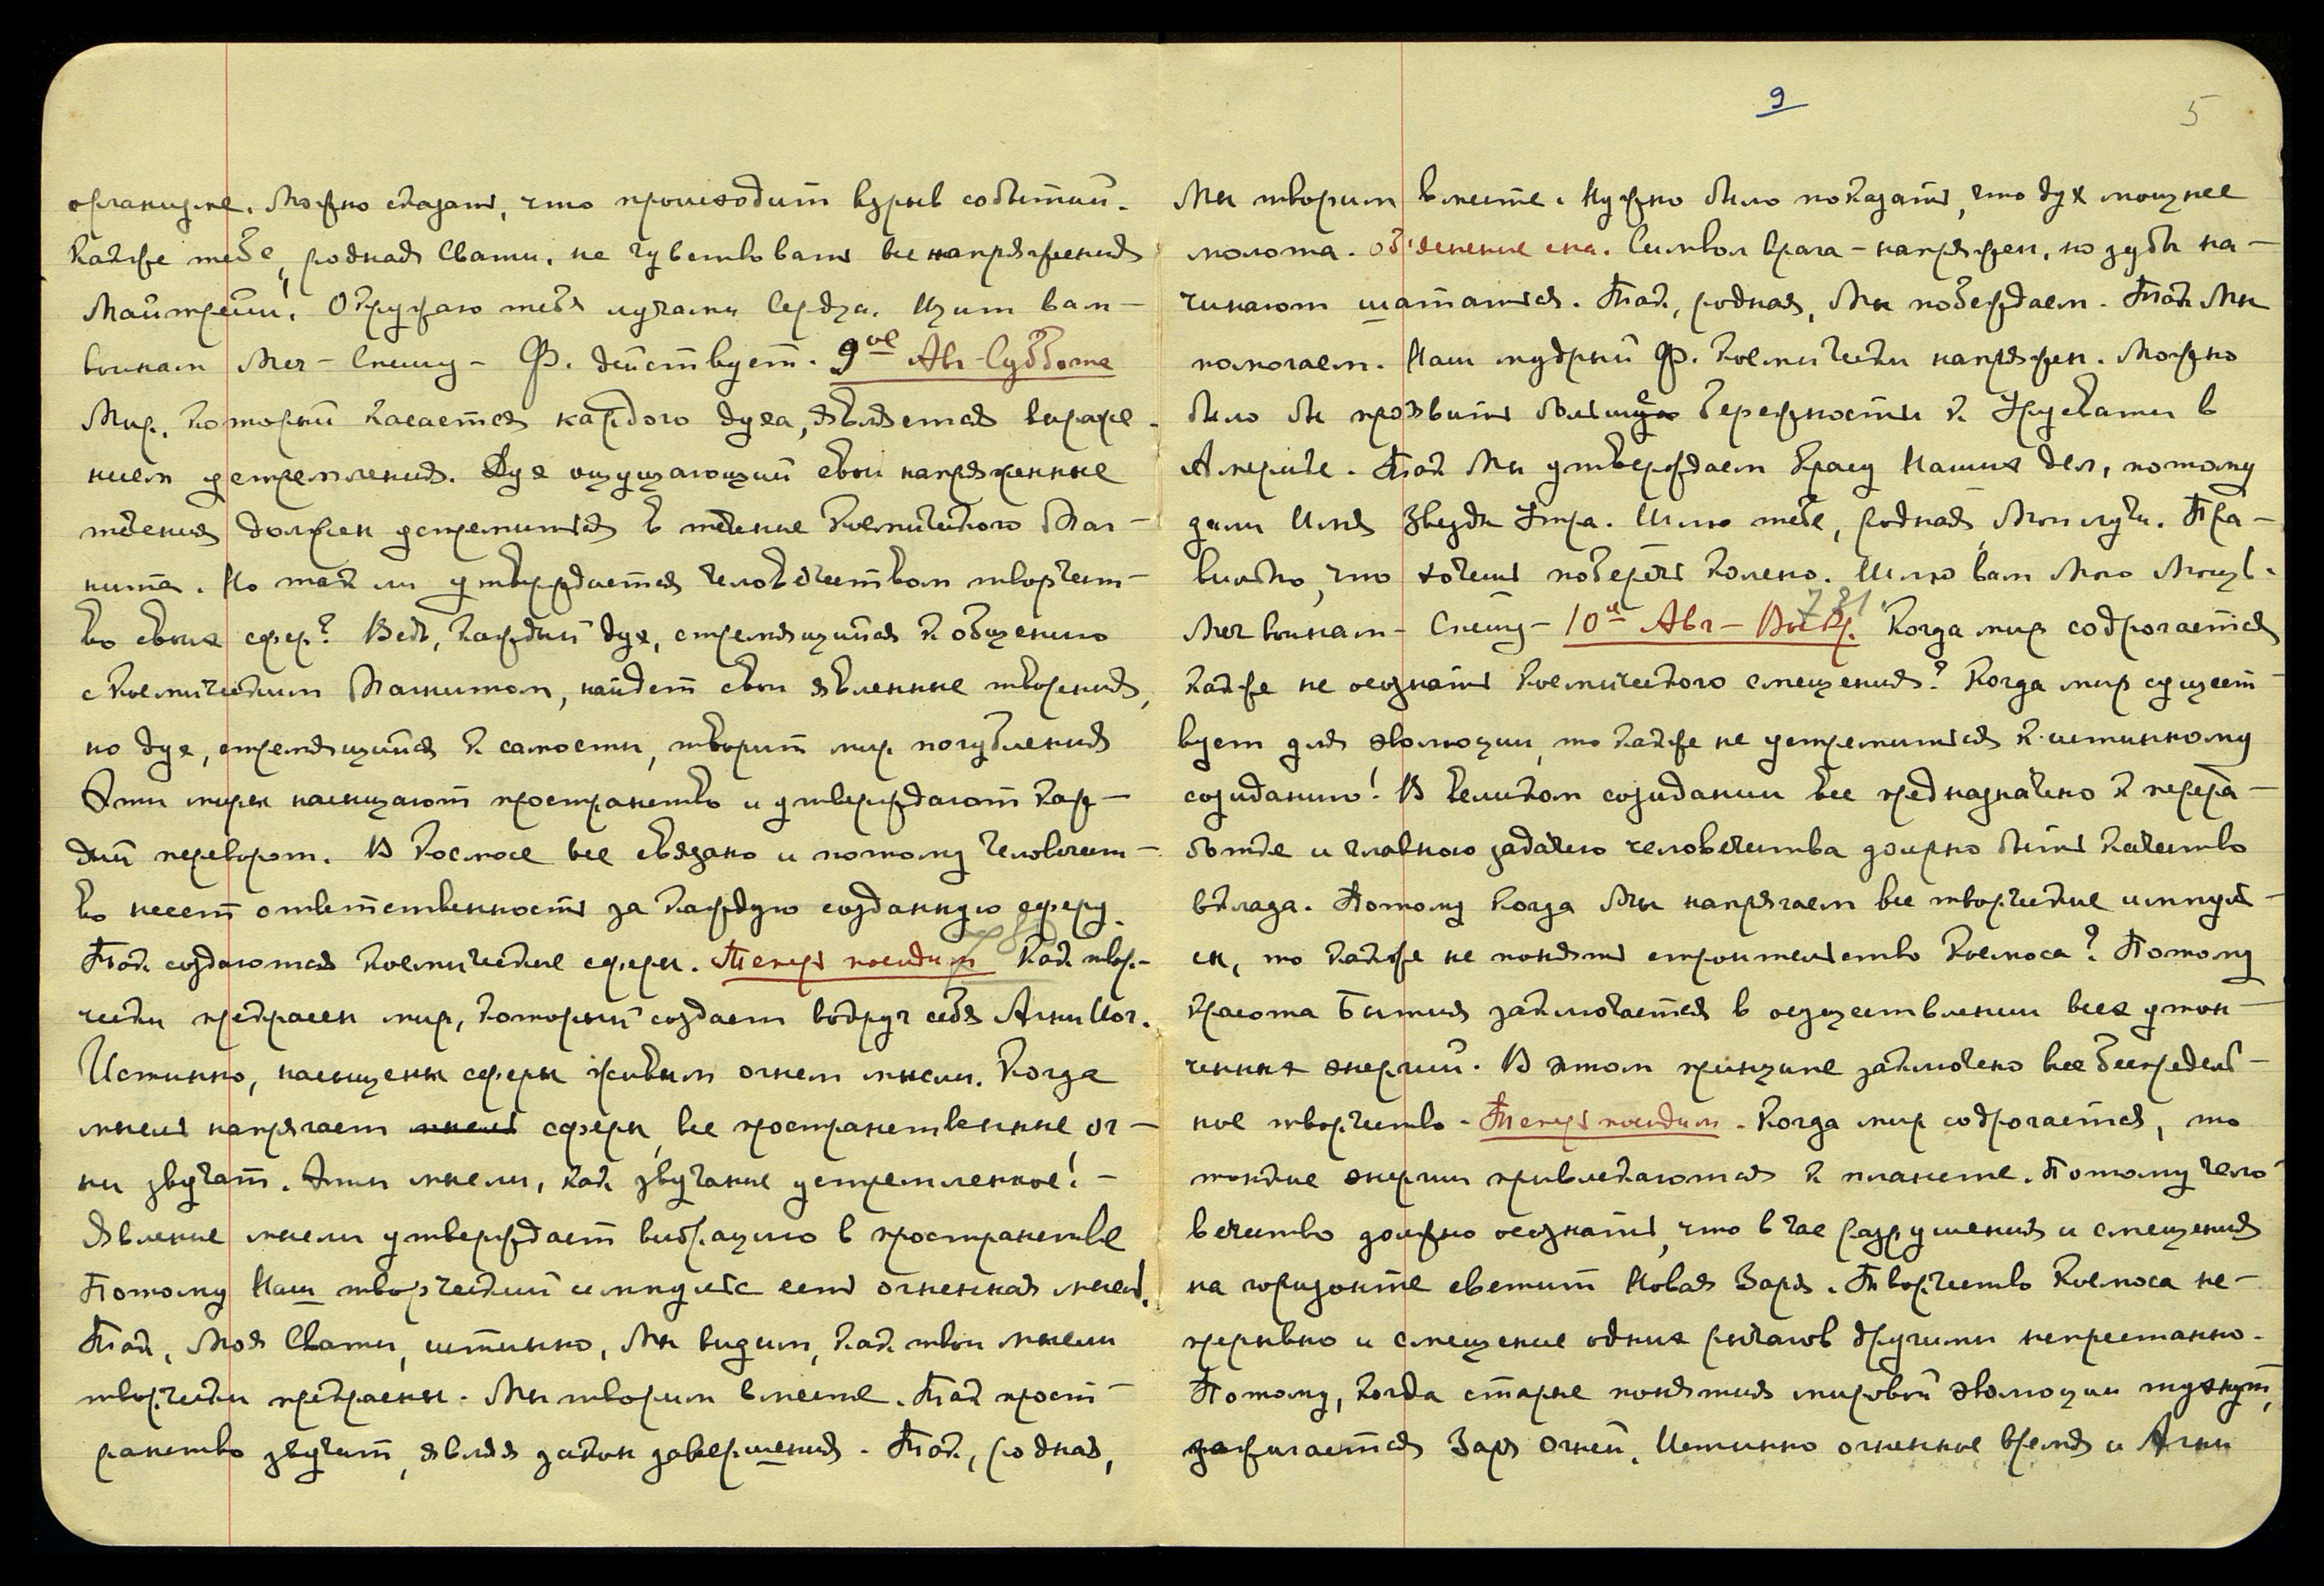 организме. Можно сказать, что происходит взрыв событий.
Как же тебе, родная Свати, не чувствовать все напряжения
Майтрейи! Окружаю тебя лучами Сердца. Щит вам –
воинам Меч – Спешу – Ф. действует. 9ое Авг – Суббота
Мир, который касается каждого духа, является выраже-
нием устремления. Дух ощущающий свои напряженные
течения должен устремиться в течение Космического Маг-
нита. Но так ли утверждается человечеством творчест-
во своих сфер? Ведь, каждый дух, стремящийся к общению
с Космическим Магнитом, найдет свои явленные творения,
но дух, стремящийся к самости, творит мир погубления
Эти миры насыщают пространство и утверждают каж-
дый переворот. В Космосе все связано и потому человечест-
во несет ответственность за каждую созданную сферу.
Так создаются космические сферы. Теперь посидим Как твор-
чески прекрасен мир, который создает вокруг себя Агни Иог.
Истинно, насыщены сферы живым огнем мысли. Когда
мысль напрягает мысль сферы, все пространственные ог-
ни звучат. Эти мысли, как звучание устремленное! –
Явление мысли утверждает вибрацию в пространстве
Потому Наш творческий импульс есть огненная мысль.
Так, Моя Свати, истинно, Мы видим, как твои мысли
творчески прекрасны. Мы творим вместе. Так прост-
ранство звучит, являя закон завершения. Так, родная,
9
5
Мы творим вместе. Нужно было показать, что дух мощнее
молота. Об'яснение сна. Символ врага – напряжен, но зубы на-
чинают шататься. Так, родная, Мы побеждаем. Так Мы
помогаем. Наш мудрый Ф. космически напряжен. Можно
было бы проявить больше бережности к Урусвати в
Америке. Так Мы утверждаем Красу Наших дел, потому
дали Имя Звезды Утра. Шлю тебе, родная, Мои лучи. Пра-
вильно, что хочешь поберечь колено. Шлю вам Мою Мощь.
731
Меч воинам – Спешу – 10ое Авг – Воскр. Когда мир содрогается
как же не осознать космического смещения? Когда мир сущест-
вует для эволюции, то как же не устремиться к истинному
созиданию! В великом созидании все предназначено к перера-
ботке и главною задачею человечества должно быть качество
вклада. Потому когда Мы напрягаем все творческие импуль-
сы, то как же не понять строительство Космоса? Потому
красота Бытия заключается в осуществлении всех утон-
ченных энергий. В этом принципе заключено все беспредель-
ное творчество. Теперь посидим. Когда мир содрогается, то
тонкие энергии привлекаются к планете. Потому чело-
вечество должно осознать, что в час разрушения и смещения
на горизонте светит Новая Заря. Творчество Космоса не-
прерывно и смещение одних рычагов другими непрестанно.
Потому, когда старые понятия мировой эволюции тухнут,
зажигается Заря Огней. Истинно огненное время и Агни